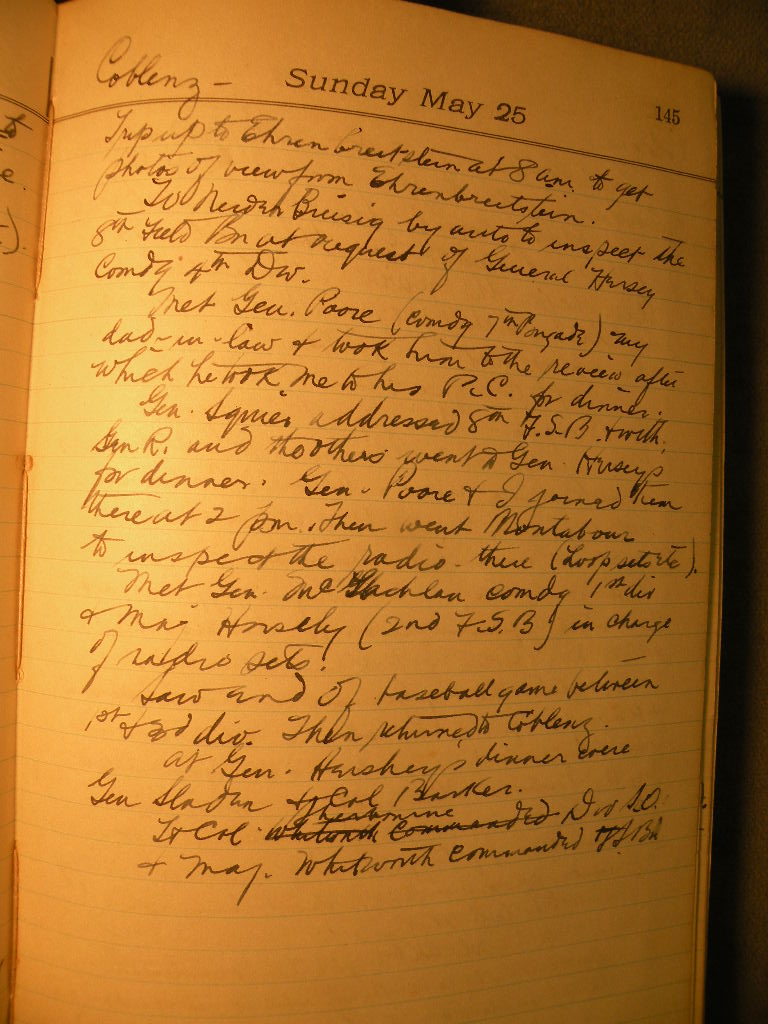 Coblenz –
Sunday May 25
145
Trip up to Ehrenbreitstein at 8 am. to get
photos of view from Ehrenbreitstein.
To Neider Breisig by auto to inspect the
8th Field Bn at request of General Hersey
Comdg 4th Div.
Met Gen. Poore (comdg 7th Brigade) my
dad-in-law & took him to the review after
which he took me to his P.C. for dinner.
Gen. Squier addressed 8th F.S.B. & with
Gen R. and the others went to Gen. Hersey's
for dinner. Gen. Poore & I joined them
there at 2 pm. Then went Montabaur
to inspect the radio there (Loop sets etc).
Met Gen. McGlachlan comdg 1st div
& Maj Horsely (2nd F.S.B) in charge
of radio sets.
Saw end of baseball game between
1st & 3d div. Then returned to Coblenz.
at Gen. Hershey's dinner were
Gen Sladen & Col Barker.
Lt Col. Commanded Div S.O.
& Maj. Whitworth commanded